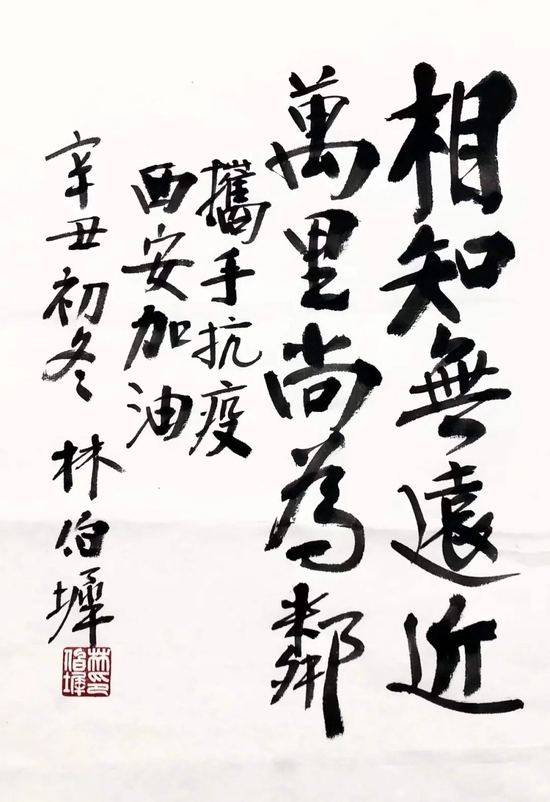 相知無遠近
萬里尚為鄰
攜手抗疫
西安加油
辛丑初冬 林伯墀
林伯墀印